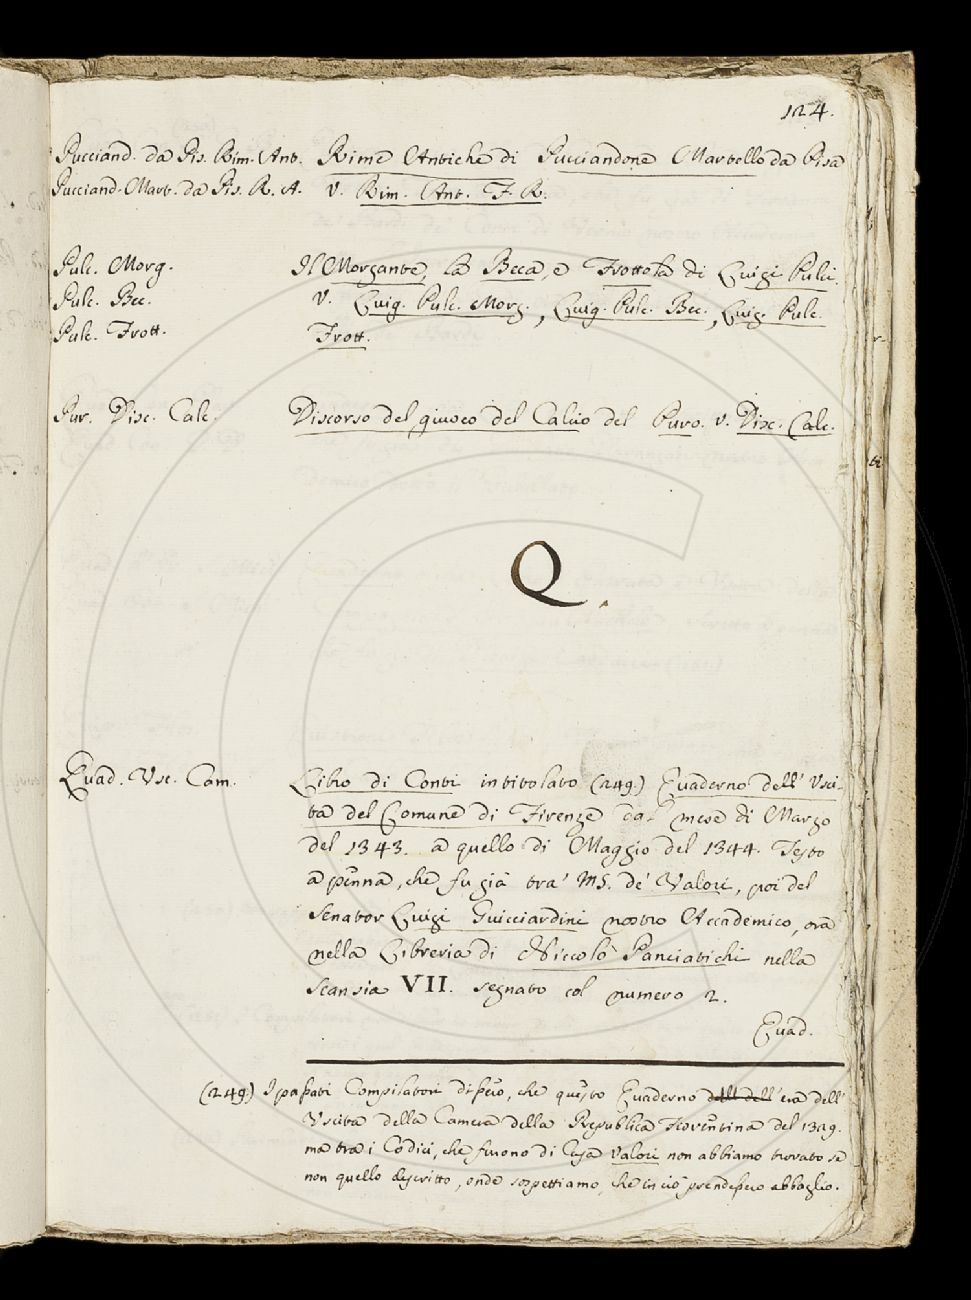 124.
Pucciand. da Pis. Rim. Ant. Rime Antiche di Pucciandone Martello da Pisa
Pucciand. Mart. da Pis. R. A. v. Rim. Ant. F. R.
Pulc. Morg. Il Morgante, la Beca, e Frottola di Luigi Pulci.
Pulc. Bec. v. Luig. Pulc. Morg., Luig. Pulc. Bec., Luig. Pulc.
Pulc. Frott. Frott.
Pur. Disc. Calc. Discorso del giuoco del Calcio del Puro. v. Disc. Calc.
Q.
Quad. Usc. Com. Libro di Conti intitolato (249.) Quaderno dell' Usci-
ta del Comune di Firenze da mese di Marzo
del 1343. a quello di Maggio del 1344. Testo
a penna, che fu già tra' MS. de' Valori, poi del
Senator Luigi Guicciardini nostro Accademico, ora
nella Libreria di Niccolò Panciatichi nella
Scansia VII. segnato col numero 2.
Quad.
(249.) I passati Compilatori dissero, che questo Quaderno dell' era dell'
Uscita della Camera della Republica Fiorentina del 1329.
ma tra i Codici, che furono di Casa Valori non abbiamo trovato se
non quello descritto, onde sospettiamo, che in ciò prendessero abbaglio.